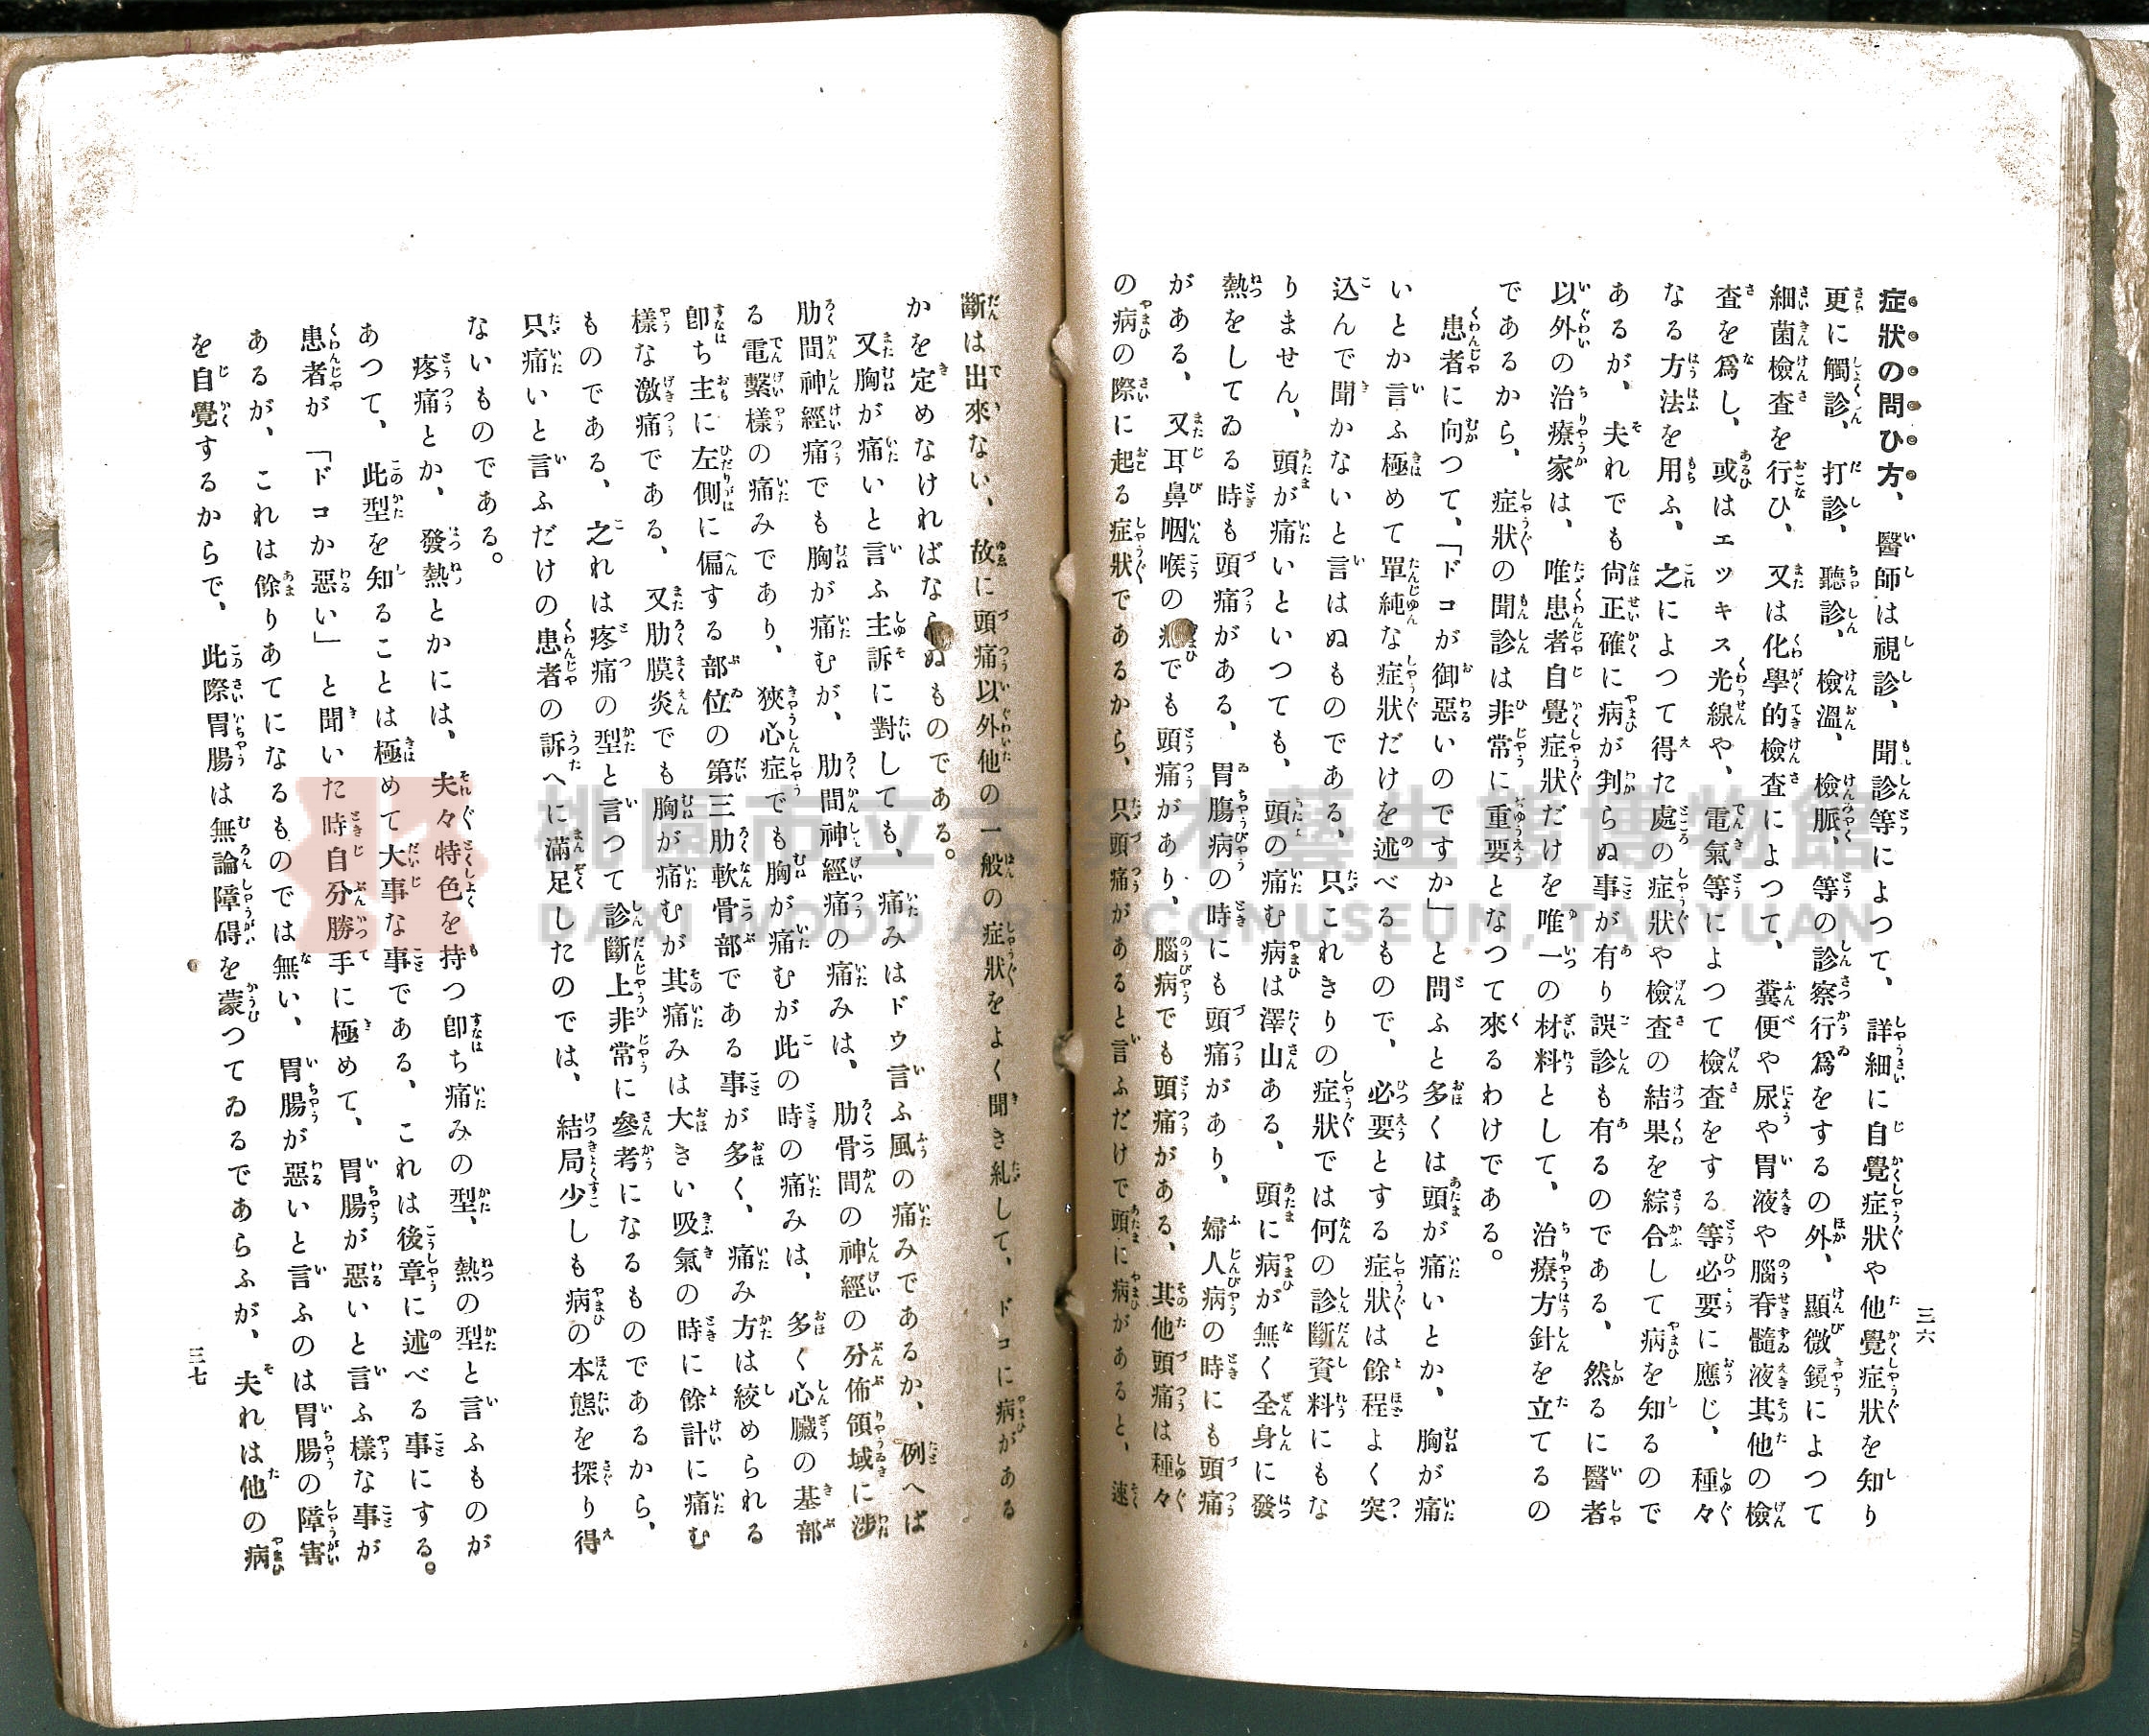 三六
症狀の問ひ方、醫師は視診、聞診等によつて、詳細に自覺症狀や他覺症狀を知り
更に觸診、打診、聽診、檢溫、檢脈、等の診察行爲をするの外、顯微鏡によつて
細菌檢査を行ひ、又は化學的檢査によつて、糞便や尿や胃液や腦脊髓液其他の檢
査を爲し、或はエッキス光線や、電氣等によつて檢査をする等必要に應じ、種々
なる方法を用ふ、之によつて得た處の症狀や檢査の結果を綜合して病を知るので
あるが、夫れでも尙正確に病が判らぬ事が有り誤診も有るのである、然るに醫者
以外の治療家は、唯患者自覺症狀だけを唯一の材料として、治療方針を立てるの
であるから、症狀の聞診は非常に重要となつて來るわけである。
患者に向つて、「ドコが御惡いのですか」と問ふと多くは頭が痛いとか、胸が痛
いとか言ふ極めて單純な症狀だけを述べるもので、必要とする症狀は餘程よく突
込んで聞かないと言はぬものである、只これきりの症狀では何の診斷資料にもな
りません、頭が痛いといつても、頭の痛む病は澤山ある、頭に病が無く全身に發
熱をしてゐる時も頭痛がある、胃腸病の時にも頭痛があり、婦人病の時にも頭痛
がある、又耳鼻咽喉の病でも頭痛があり、腦病でも頭痛がある、其他頭痛は種々
の病の際に起る症狀であるから、只頭痛があると言ふだけで頭に病があると、速
斷は出來ない、故に頭痛以外他の一般の症狀をよく聞き糺して、ドコに病がある
かを定めなければならぬものである。
又胸が痛いと言ふ主訴に對しても、痛みはドウ言ふ風の痛みであるか、例へば
肋間神經痛でも胸が痛むが、肋間神經痛の痛みは、肋骨間の神經の分佈領域に涉
る電繫樣の痛みであり、狹心症でも胸が痛むが此の時の痛みは、多く心臟の基部
卽ち主に左側に偏する部位の第三肋軟骨部である事が多く、痛み方は絞められる
樣な激痛である、又肋膜炎でも胸が痛むが其痛みは大きい吸氣の時に餘計に痛む
ものである、之れは疼痛の型と言つて診斷上非常に參考になるものであるから、
只痛いと言ふだけの患者の訴へに滿足したのでは、結局少しも病の本態を探り得
ないものである。
疼痛とか、發熱とかには、夫々特色を持つ卽ち痛みの型、熱の型と言ふものが
あつて、此型を知ることは極めて大事な事である、これは後章に述べる事にする。
患者が「ドコか惡い」と聞いた時自分勝手に極めて、胃腸が惡いと言ふ樣な事が
あるが、これは餘りあてになるものでは無い、胃腸が惡いと言ふのは胃腸の障害
を自覺するからで、此際胃腸は無論障碍を蒙つてゐるであらふが、夫れは他の病
三七
桃園市立大溪木藝生態博物館
DAXI WOOD ART ECOMUSEUM, TAOYUAN